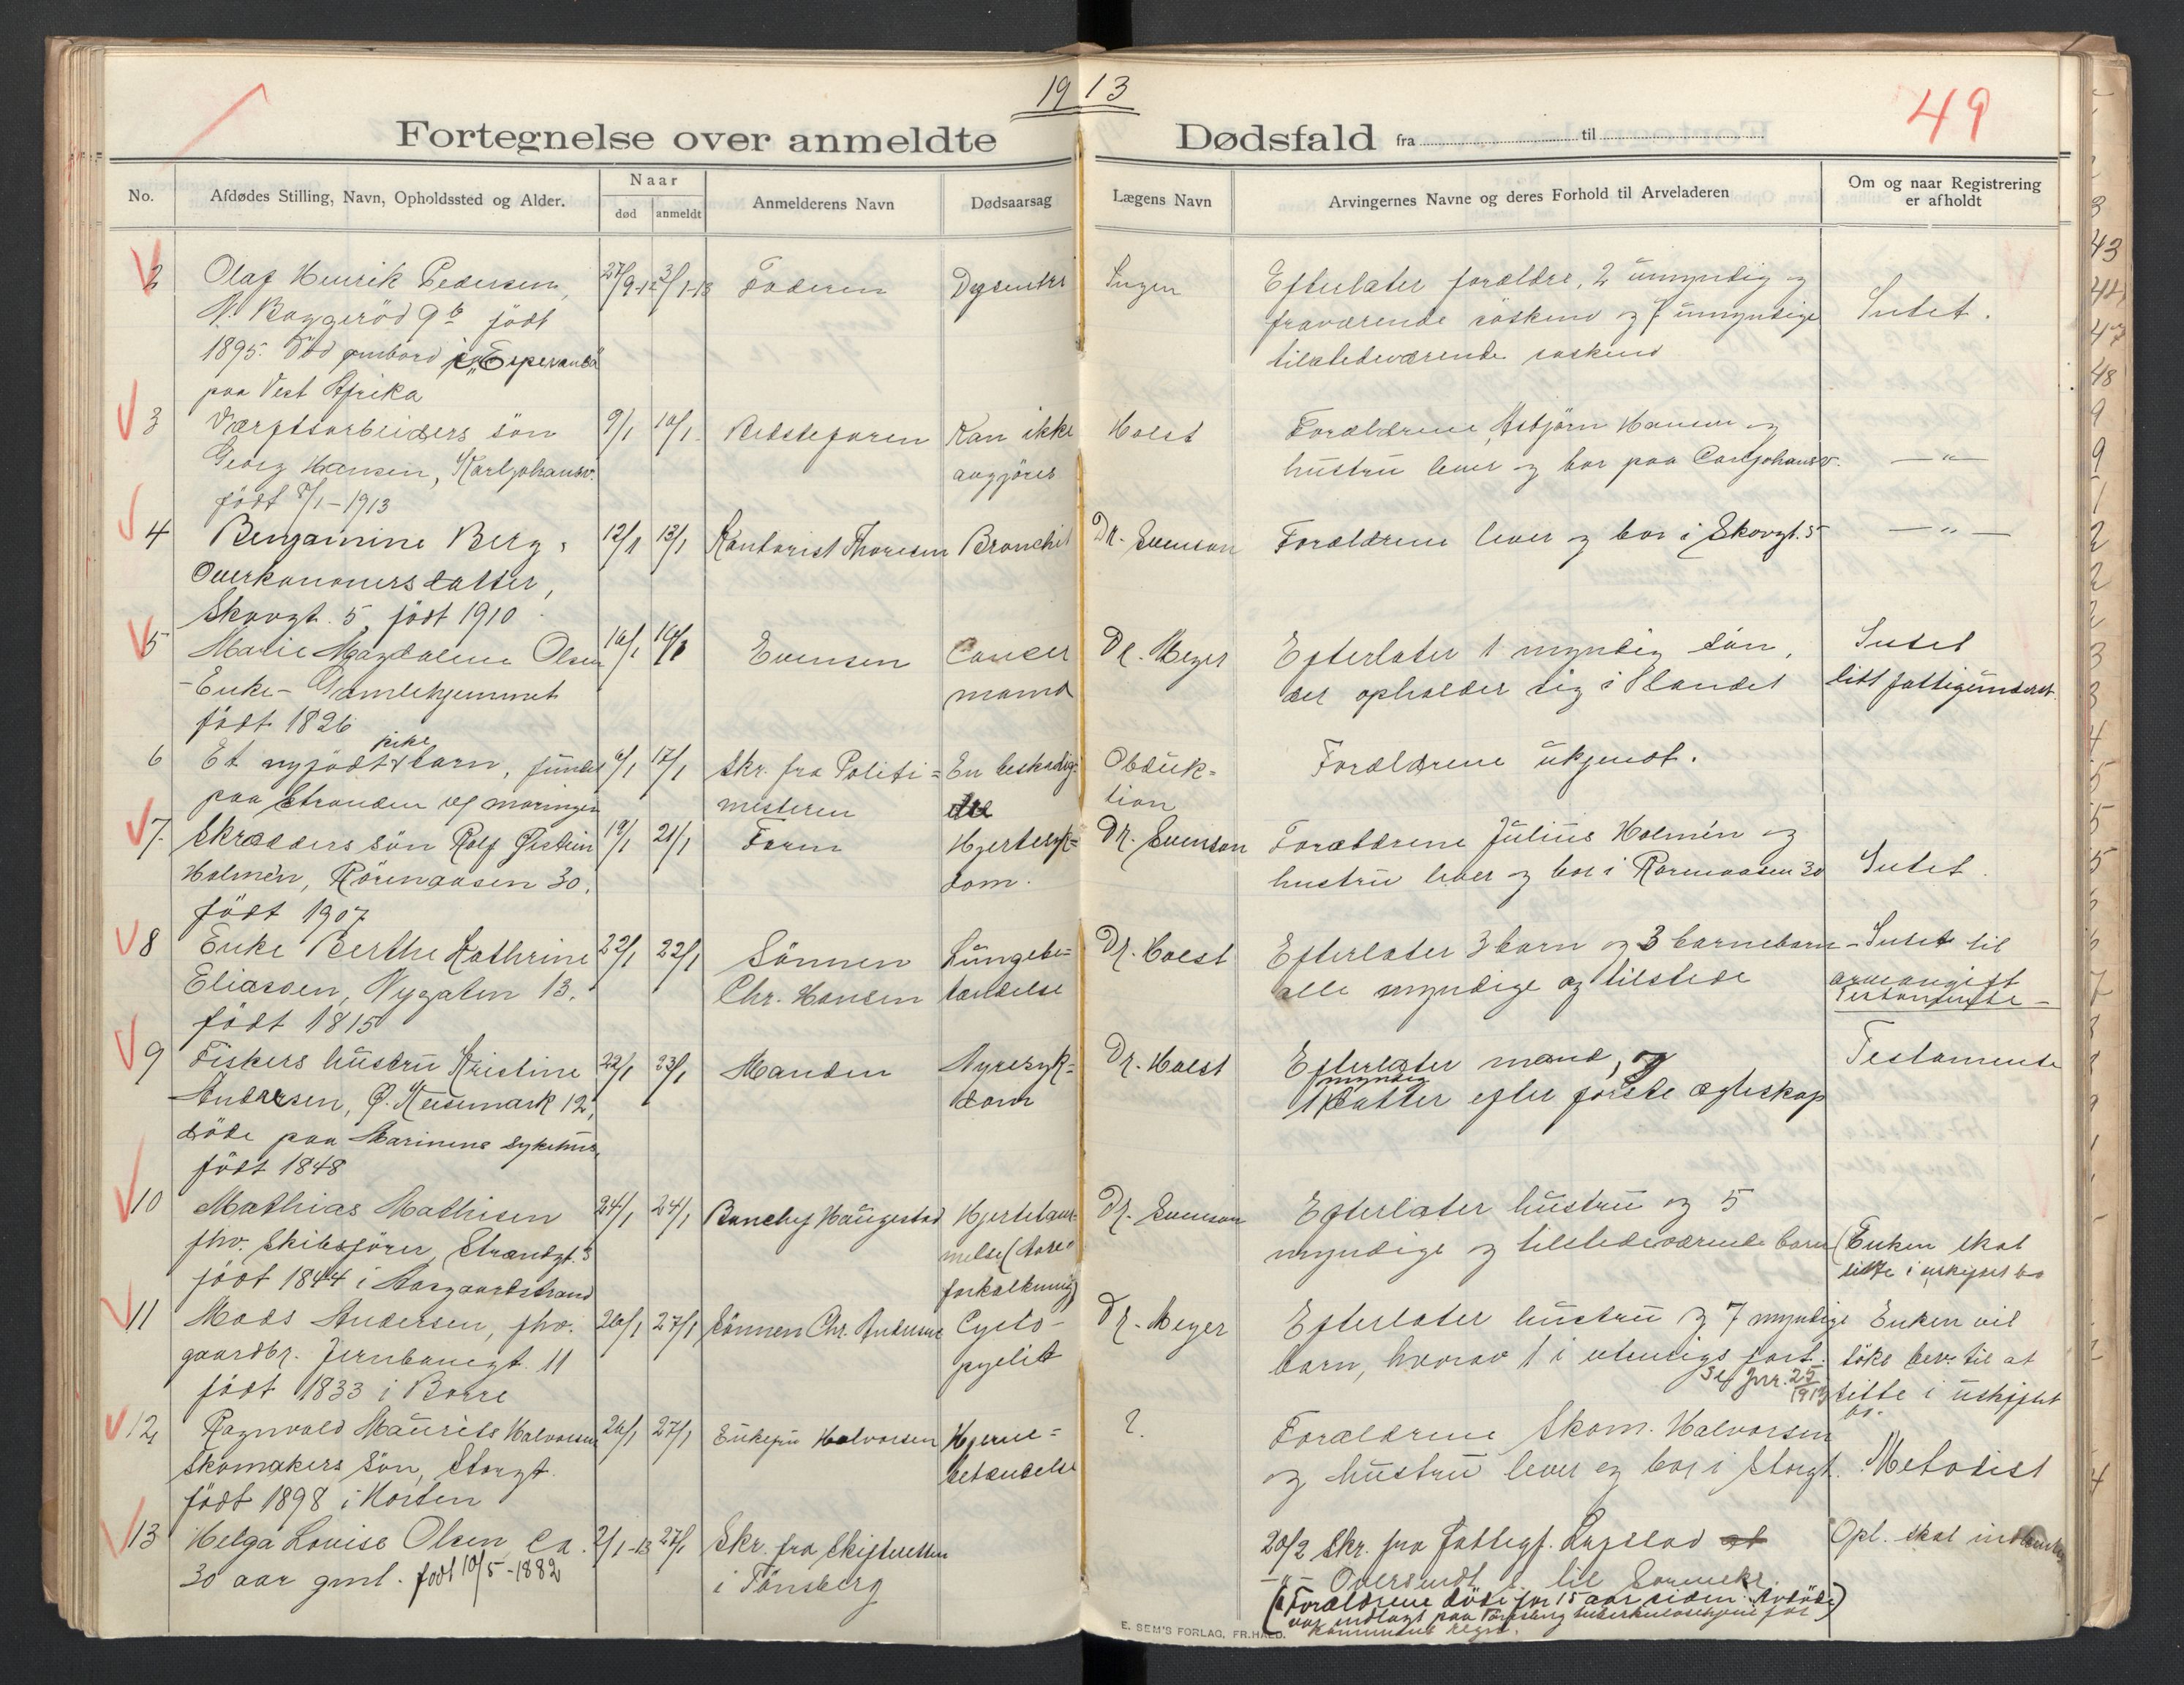 1913
49
Fortegnelse over anmeldte Dødsfald fra til
No.
Afdødes Stilling, Navn, Opholdssted og Alder.
Naar
død
anmeldt
Anmelderens Navn
Dødsaarsag
Lægens Navn
Arvingernes Navne og deres Forhold til Arveladeren
Om og naar Registrering
er afholdt
2 Olaf Henrik Pedersen, 27/9-12 3/1-13 Faderen Dysentri Ingen Efterlater forældre, 2 umyndig og
N. Baggerød 9b født fraværende søskend og 7 umyndige Intet.
1895. Død ombord i "Esperanca" tilstedeværende søskend
paa Vest Afrika
3 Værftsarbeiders søn 9/1 10/1 Bedstefaren Kan ikke Holst Forældrene Asbjørn Hansen og
Georg Hansen, Karljohansv. angjøres hustru lever og bor paa Carljohansv. — " —
født 8/1-1913
4 Benjamine Berg, 12/1 13/1 Kontorist Thoresen Bronchit Dr. Evenson Forældrene lever og bor i Skovgt. 5 — " —
Overkanoners datter,
Skovgt. 5, født 1910
5 Marie Magdalene Olsen 16/1 16/1 Evensen Cancer Dr. Meyer Efterlater 1 myndig søn, Intet
- Enke - Gamlehjemmet mama der opholder sig i Utlandet litt fattigunderst.
født 1826
6 Et nyfødt pike barn, fundet 6/1 17/1 Skr. fra Politi= En beskadig= Obduk= Forældrene ukjendt.
paa Stranden af maringen mesteren tion
7. Skrædders søn Rolf Øistein 19/1 21/1 Faren Hjertesyk= Dr. Evenson Forældrene Julius Holmén og
Holmén, Rørengaasen 30, dom. hustru lever og bor i Rørenaasen 30 Intet.
født 1907
8 Enke Berthe Kathrine 22/1 22/1 Sønnen Lungebe= Dr. Holst Efterlater 3 barn og 3 barnebarn - Intet til
Eliassen, Nygaten 13. Chr. Hansen tændelse alle myndige og tilstede arveavgift
født 1815 Testamente -
9 Fiskers hustru Kristine 22/1 23/1 Manden Nyresyk= Dr. Holst Efterlater mand, og Testamente
Andersen, Ø. Keisemark 12, dom 1 myndig datter efter første egteskap
døde paa Marinens sykehus,
født 1848
10 Mathias Mathisen 24/1 24/1 Banchef Haugestad Hjertelam- Dr. Evenson Efterlater hustru og 5
fhv. Skibsfører, Strandgt. 3 melse (Aare- myndige og tilstedeværende barn (Enken skal
født 1844 i Aasgaardstrand forkalkning) sitte i uskiftet bo
11 Mads Andersen, fhv. 26/1 27/1 Sønnen Chr. Andersen Cysto- Dr. Meyer Efterlater hustru og 7 myndige Enken vil
gaardbr. Jernbanegt. 11 pyelit barn, hvorav 1 i utenrigs fart. søke bev. til at
født 1833 i Borre Se Jnr. 25/1913 sitte i uskiftet
bo.
12 Ragnvald Maurits Halvorsen 26/1 27/1 Enkefru Halvorsen Hjerne= ? Forældrene Skom. Halvorsen
Skomakers søn, Storgt. betændelse og hustru lever og bor i Storgt. Metodist
født 1898 i Horten
13 Helga Louise Olsen ca. 2/1-13 27/1 Skr. fra Skifteretten 20/2 Skr. fra Fattigf. Opl. skal
30 aar gml. født 10/5-1882 i Tønsberg - " - Oversendt s. til Sorenskr.
(Forældrene døde for 15 aar siden. Avdøde
var indlagt paa Tønsberg tuberkulosehjem for
kommunens regn.)
E. SEM'S FORLAG, FR.HALD.